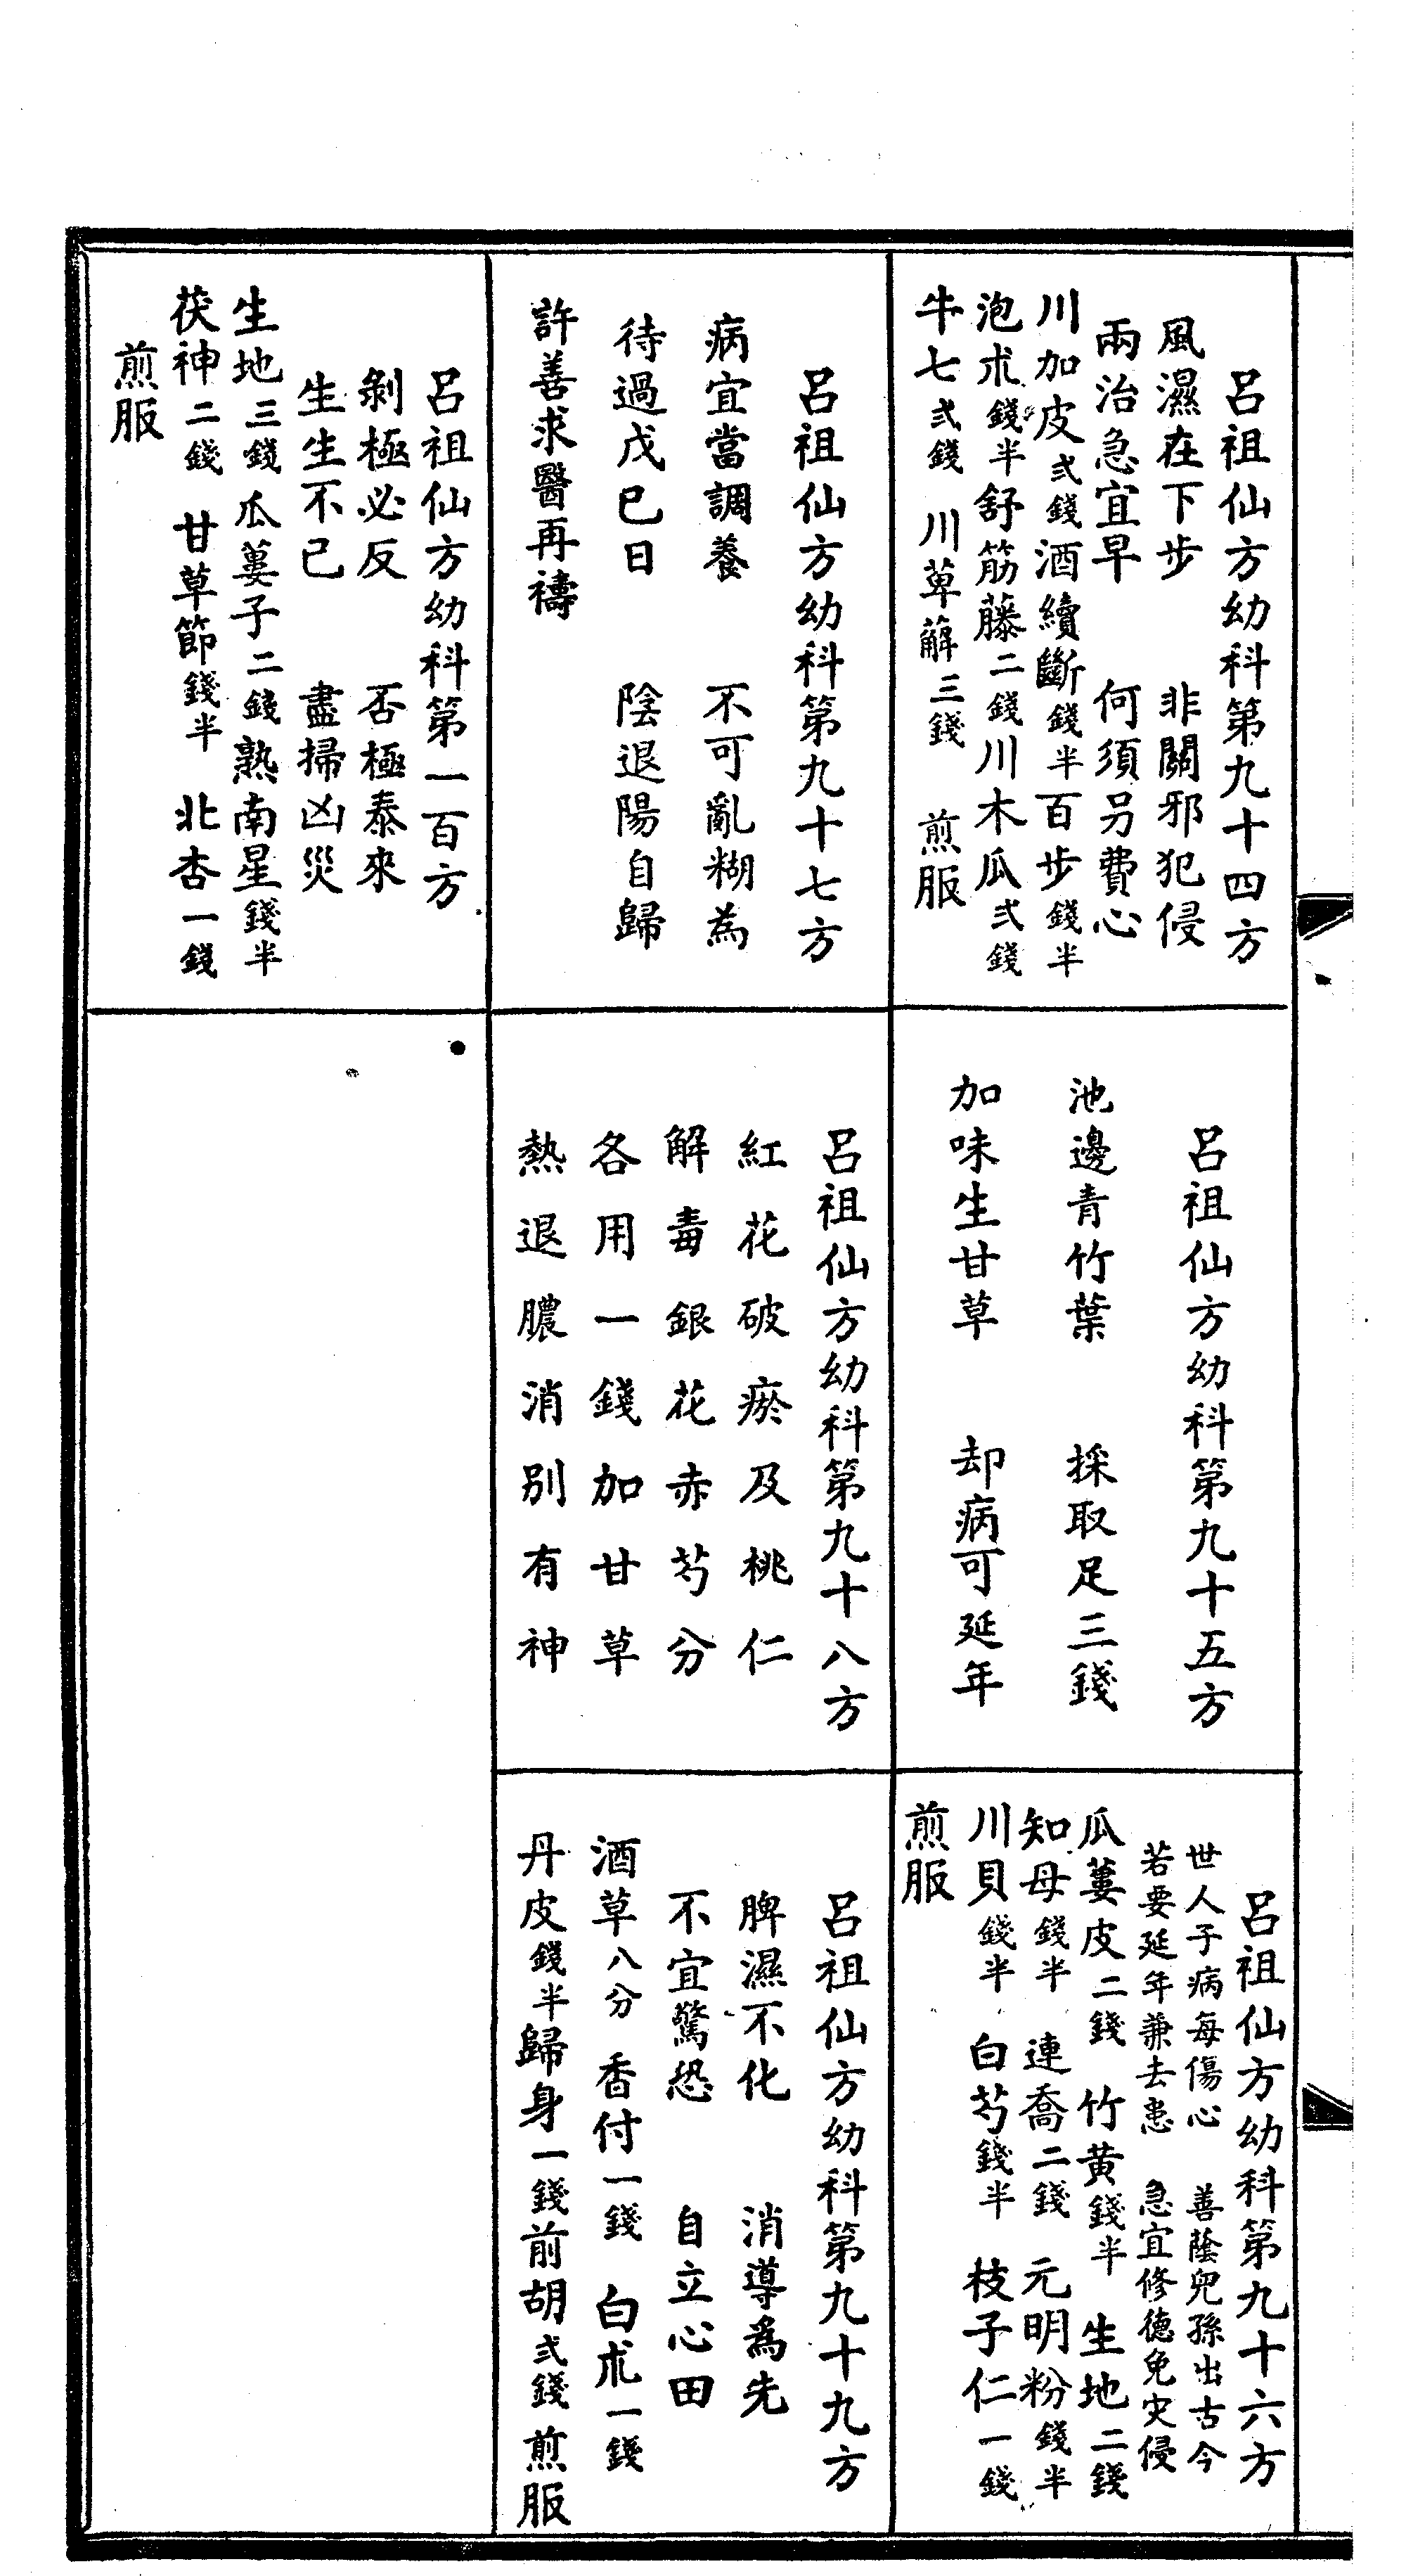 呂祖仙方幼科第九十四方
風濕在下步　非關邪犯侵
兩治急宜早　何須另費心
川加皮弍錢酒續斷錢半百步錢半
泡朮錢半舒筋藤二錢川木瓜弍錢
牛七弍錢　川萆薢三錢　煎服
呂祖仙方幼科第九十五方
池邊青竹葉　採取足三錢
加味生甘草　却病可延年
呂祖仙方幼科第九十六方
世人子病每傷心　善蔭兒孫出古今
若要延年兼去患　急宜修德免灾侵
瓜蔞皮二錢　竹黃錢半　生地二錢
知母錢半　連喬二錢　元明粉錢半
川貝錢半　白芍錢半　枝子仁一錢
煎服
呂祖仙方幼科第九十七方
病宜當調養　不可亂糊為
待過戊巳日　陰退陽自歸
許善求醫再禱
呂祖仙方幼科第九十八方
紅花破瘀及桃仁
解毒銀花赤芍分
各用一錢加甘草
熱退膿消別有神
呂祖仙方幼科第九十九方
脾濕不化　消導為先
不宜驚恐　自立心田
酒草八分　香付一錢　白朮一錢
丹皮錢半歸身一錢前胡弍錢煎服
呂祖仙方幼科第一百方
剝極必反　否極泰來
生生不已　盡掃凶災
生地三錢瓜蔞子二錢熟南星錢半
茯神二錢　甘草節錢半　北杏一錢
煎服